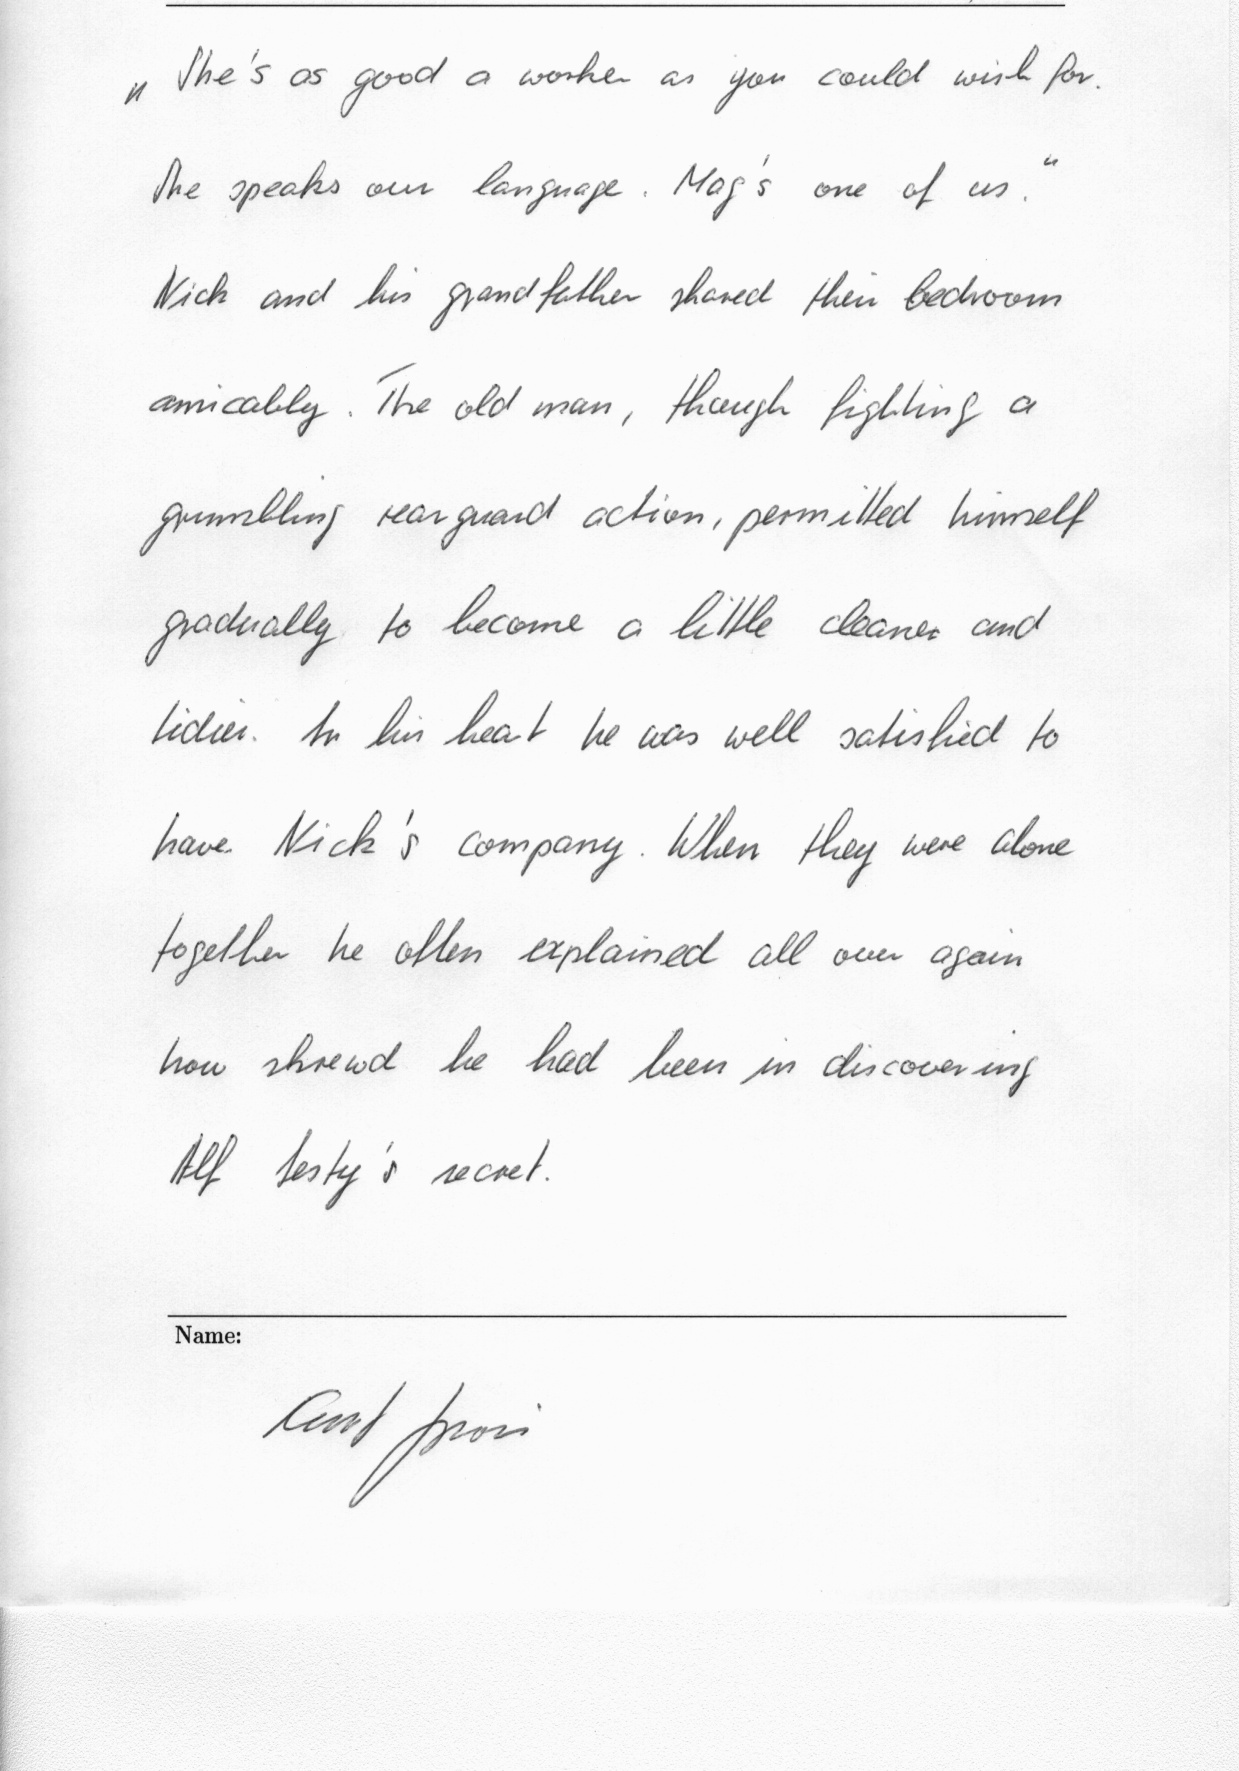 „She's as good a worker as you could wish for.
She speaks our language. Mag's one of us.“
Nick and his grandfather shared their bedroom
amicably. The old man, though fighting a
grumbling rearguard action, permitted himself
gradually to become a little cleaner and
tidier. In his heart he was well satisfied to
have Nick's company. When they were alone
together he often explained all over again
how shrewd he had been in discovering
Alf Testy's secret.
Name: